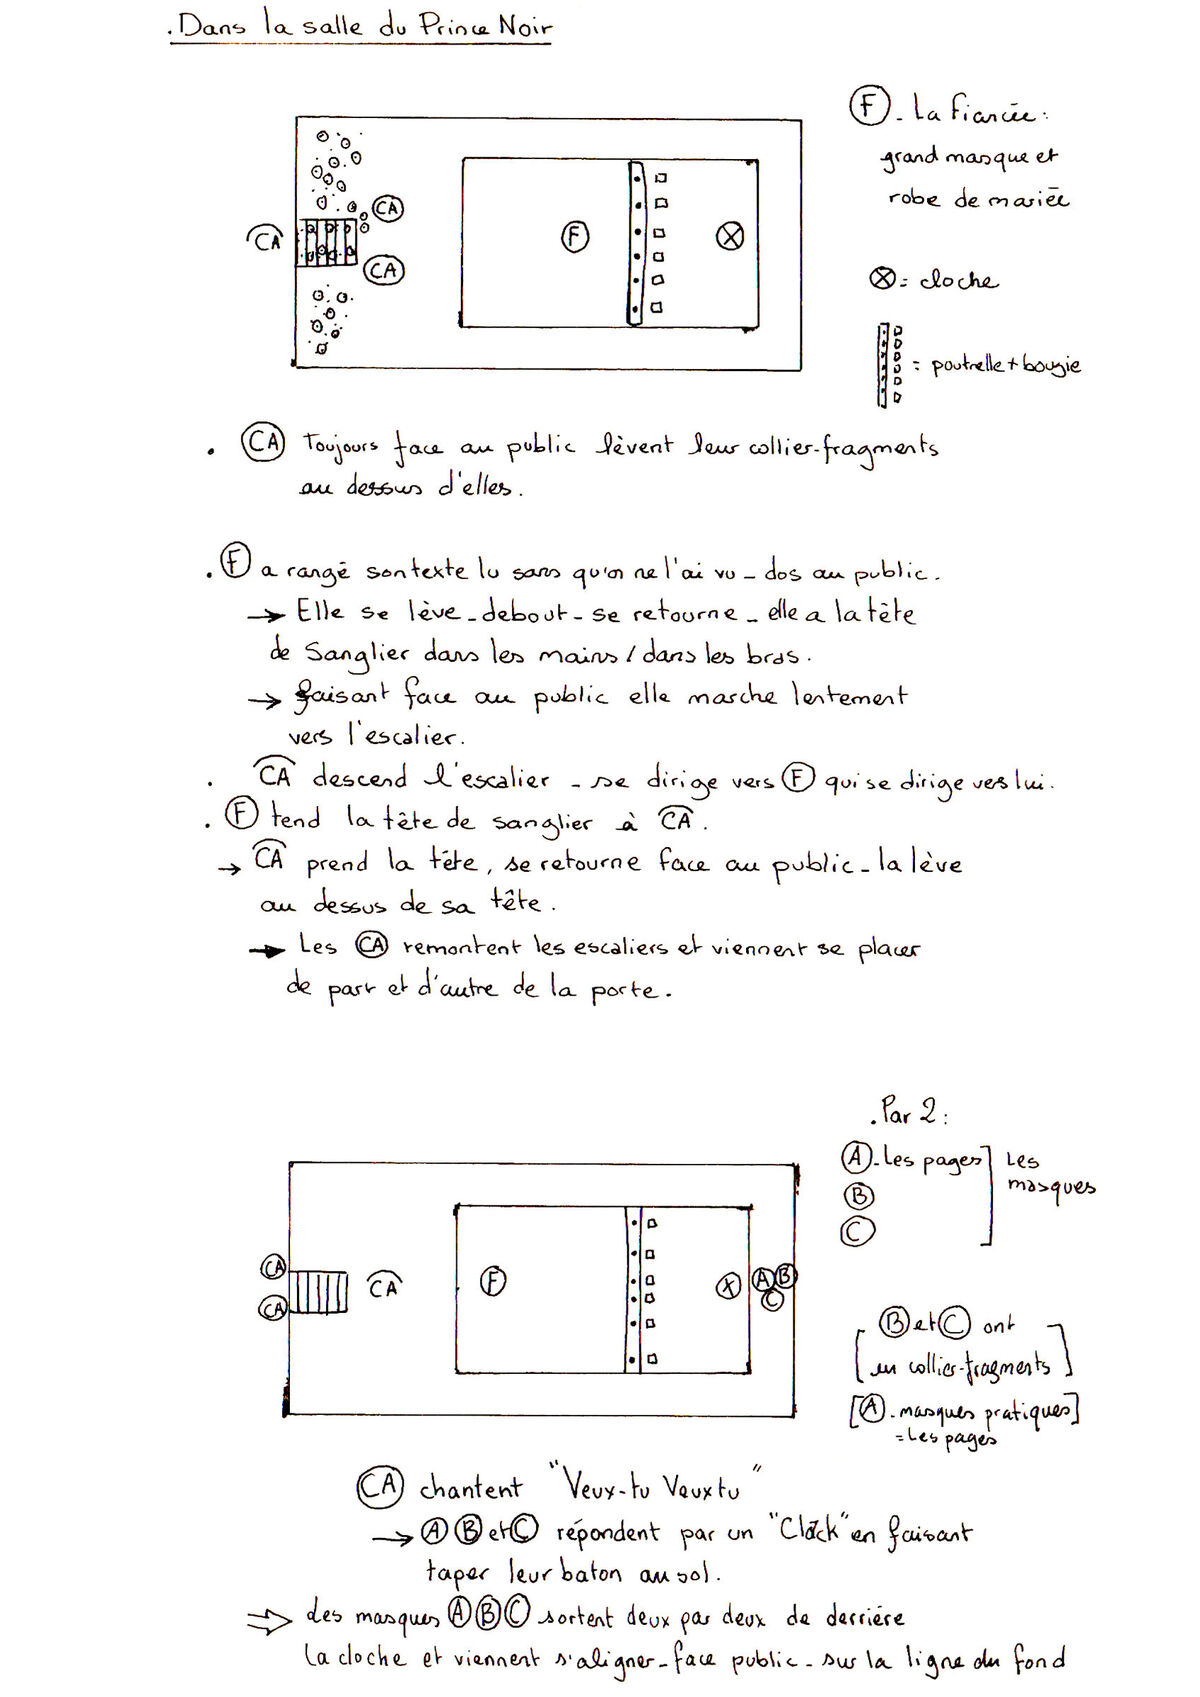 . Dans la salle du Prince Noir
F - La fiancée :
grand masque et
robe de mariée
CA
CA
CA
F
= cloche
= poutrelle + bougie
. CA Toujours face au public lèvent leur collier-fragments
au dessus d'elles.
. F a rangé son texte lu sans qu'on ne l'ai vu - dos au public.
→ Elle se lève - debout - se retourne - elle a la tête
de Sanglier dans les mains / dans les bras.
→ faisant face au public elle marche lentement
vers l'escalier.
. CA descend l'escalier - se dirige vers F qui se dirige vers lui.
. F tend la tête de sanglier à CA.
→ CA prend la tête, se retourne face au public - la lève
au dessus de sa tête.
→ Les CA remontent les escaliers et viennent se placer
de part et d'autre de la porte.
. Par 2 :
A - Les pages ] Les
masques
B
C
CA
CA
CA
F
A B
C
[ B et C ont
un collier-fragments ]
[ A - masques pratiques ]
= Les pages
CA chantent "Veux-tu Veux tu"
→ A B et C répondent par un "Clack" en faisant
taper leur baton au sol.
⇒ des masques A B C sortent deux par deux de derriére
la cloche et viennent s'aligner - face public - sur la ligne du fond